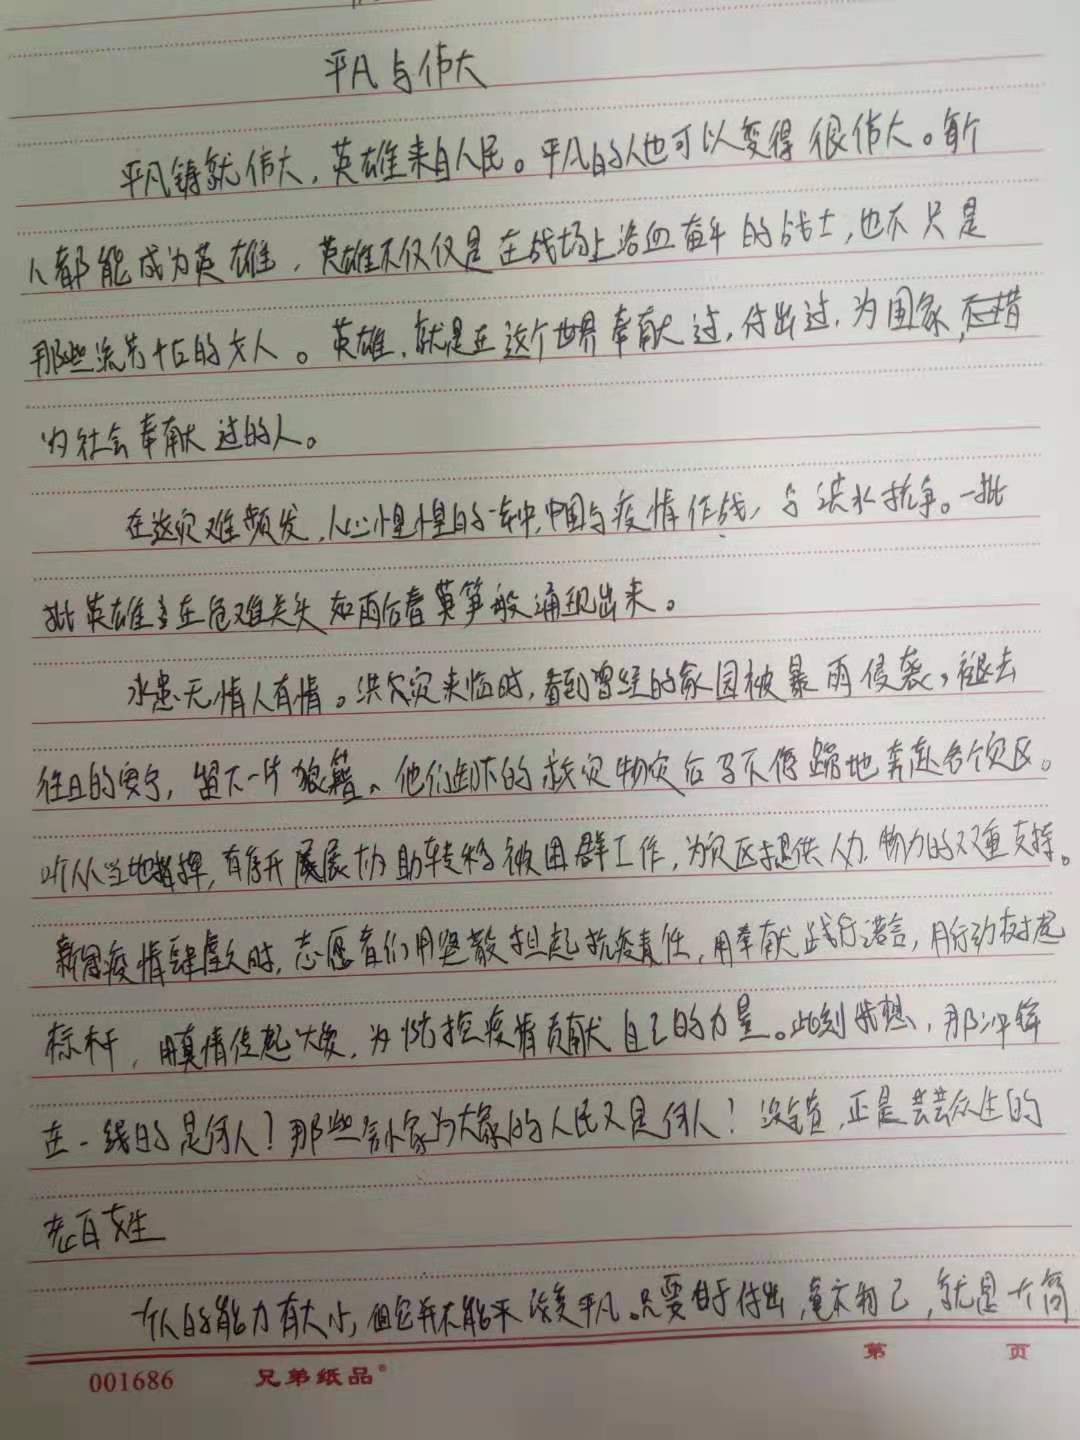 平凡与伟大
平凡铸就伟大，英雄来自人民。平凡的人也可以变得很伟大。每个
人都能成为英雄，英雄不仅仅是在战场上浴血奋斗的战士，也不只是
那些流芳千古的女人。英雄，就是在这个世界奉献过，付出过，为国家，
为社会奉献过的人。
在这灾难频发，人心惶惶的一年中，中国与疫情作战，与洪水抗争。一批
批英雄在危难关头如雨后春笋般涌现出来。
水患无情人有情。洪灾来临时，看到曾经的家园被暴雨侵袭，褪去
往日的安宁，留下一片狼籍。他们卸下的救灾物资后马不停蹄地奔赴各个灾区。
听从当地指挥，有序开展协助转移被困群工作，为灾区提供人力、物力的双重支持。
新冠疫情肆虐之时，志愿者们用坚毅担起抗疫责任，用奉献践行诺言，用行动树起
标杆，用真情传起大爱，为防控疫情贡献自己的力量。此刻我想，那冲锋
在一线的是何人？那些舍小家为大家的人民又是何人！没错，正是芸芸众生的
老百姓
个人的能力有大小，但它并不能评误平凡。只要甘于付出，毫不利己，就是一个高
001686 兄弟纸品 第 页